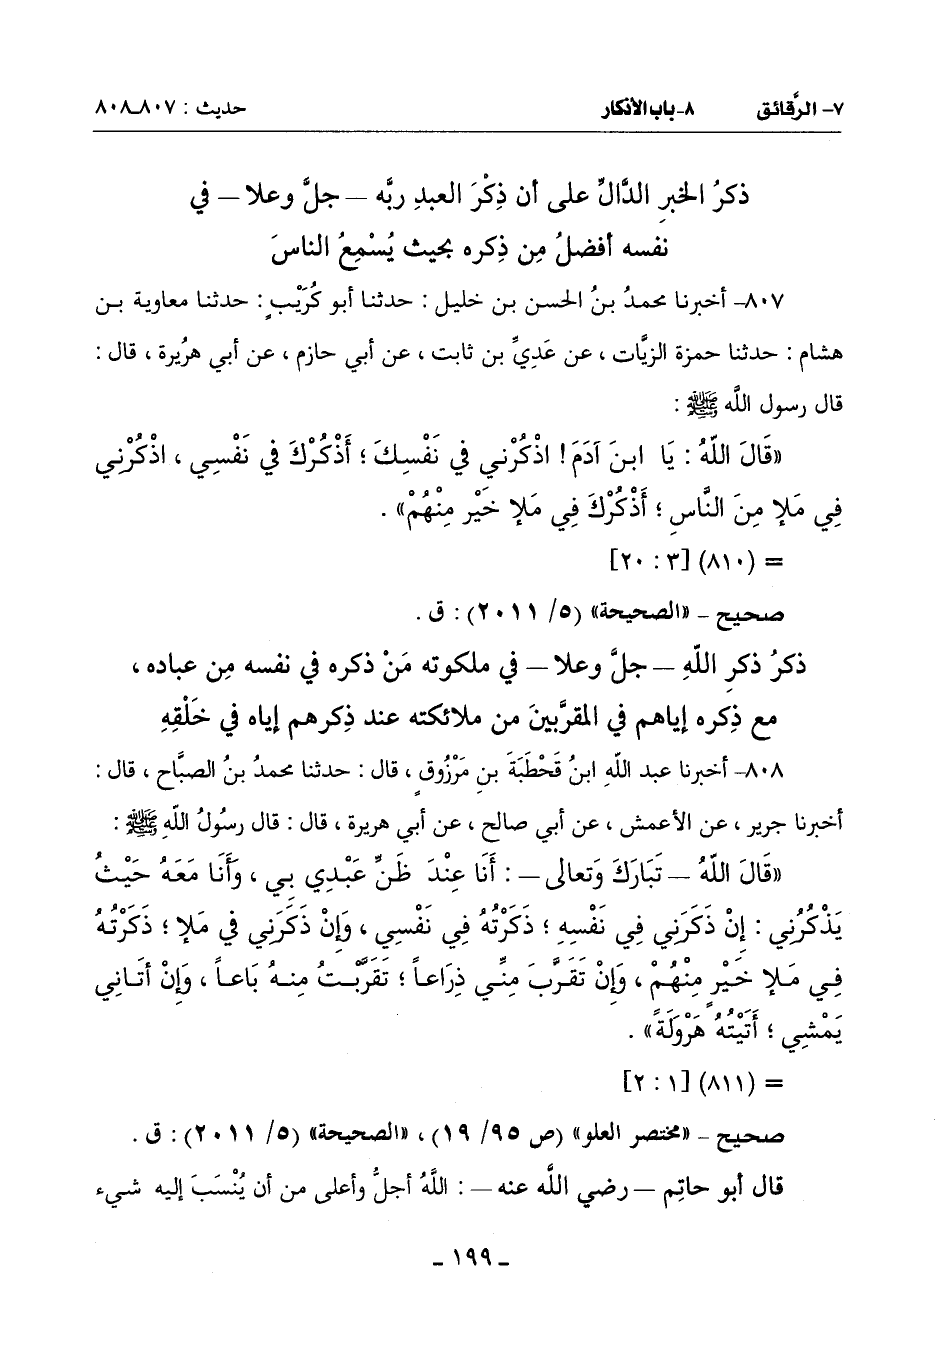 ٧- الرَّقائق ٨- باب الأذكار حديث : ٨٠٧ـ٨٠٨
ذكرُ الخبرِ الدَّالِّ على أن ذِكْرَ العبدِ ربَّه – جلَّ وعلا – في
نفسه أفضلُ مِن ذِكره بحيث يُسْمِعُ الناسَ
٨٠٧- أخبرنا محمدُ بنُ الحسن بن خليل : حدثنا أبو كُرَيْبٍ : حدثنا معاوية بن
هشام : حدثنا حمزة الزيَّات ، عن عَدِيِّ بن ثابت ، عن أبي حازم ، عن أبي هرُيرة ، قال :
قال رسول اللَّه ﷺ :
«قَالَ اللَّهُ : يَا ابنَ آدَمَ! اذْكُرْني في نَفْسِكَ ؛ أَذْكُرْكَ في نَفْسِي ، اذْكُرْنِي
فِي مَلإٍ مِنَ النَّاسِ ؛ أَذْكُرْكَ فِي مَلإٍ خَيْرٍ مِنْهُمْ» .
= (٨١٠) [٣ : ٢٠]
صحيح - «الصحيحة» (٥/ ٢٠١١) : ق .
ذكرُ ذكرِ اللَّهِ – جلَّ وعلا – في ملكوته مَنْ ذكره في نفسه مِن عباده ،
مع ذِكره إياهم في المقرَّبينَ من ملائكته عند ذِكرهم إياه في خَلْقِهِ
٨٠٨- أخبرنا عبد اللَّهِ ابنُ قَحْطَبَةَ بنِ مَرْزُوقٍ ، قال : حدثنا محمدُ بنُ الصبَّاح ، قال :
أخبرنا جرير ، عن الأعمش ، عن أبي صالح ، عن أبي هريرة ، قال : قال رسُولُ اللَّهِ ﷺ :
«قَالَ اللَّهُ – تَبَارَكَ وَتعالى – : أَنَا عِنْدَ ظَنِّ عَبْدِي بي ، وَأَنَا مَعَهُ حَيْثُ
يَذْكُرُني : إنْ ذَكَرَني فِي نَفْسِهِ ؛ ذَكَرْتهُ فِي نَفْسِي ، وَإِنْ ذَكَرَنِي في مَلإٍ ؛ ذَكَرْتُهُ
فِي مَلإٍ خَيْرٍ مِنْهُمْ ، وَإِنْ تَقَرَّبَ مِنِّي ذِرَاعاً ؛ تَقَرَّبْتُ مِنهُ بَاعاً ، وَإِنْ أَتَانِي
يَمْشِي ؛ أَتَيْتُهُ هَرْوَلَةً» .
= (٨١١) [١ : ٢]
صحيح - «مختصر العلو» (ص ٩٥/ ١٩) ، «الصحيحة» (٥/ ٢٠١١) : ق .
قال أبو حاتِم – رضي اللَّه عنه – : اللَّهُ أجلُّ وأعلى من أن يُنْسَبَ إليه شيء
- ١٩٩ -